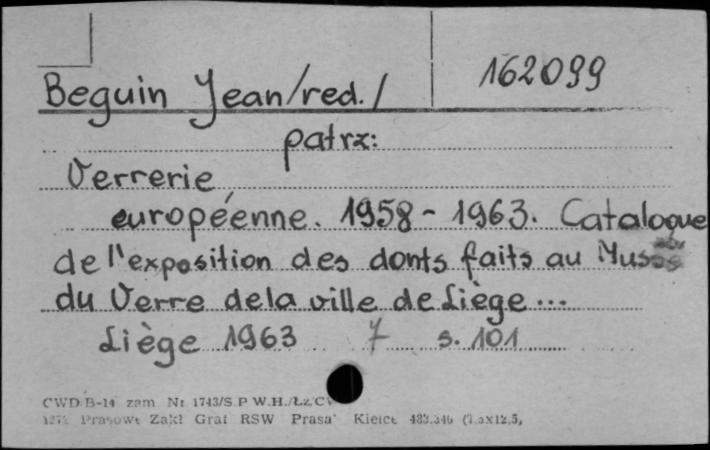 Beguin Jean/red./ 162099
patrz:
Verrerie
européenne. 1958-1963. Catalogue
de l'exposition des donts faits au
du Verre de la ville de Liège...
Liège 1963 7 s. 101
CWD B-14 zam. Nr 1743/S P W.H./ŁZ/CW
Prasowe Zakł Graf RSW Prasa Kielce